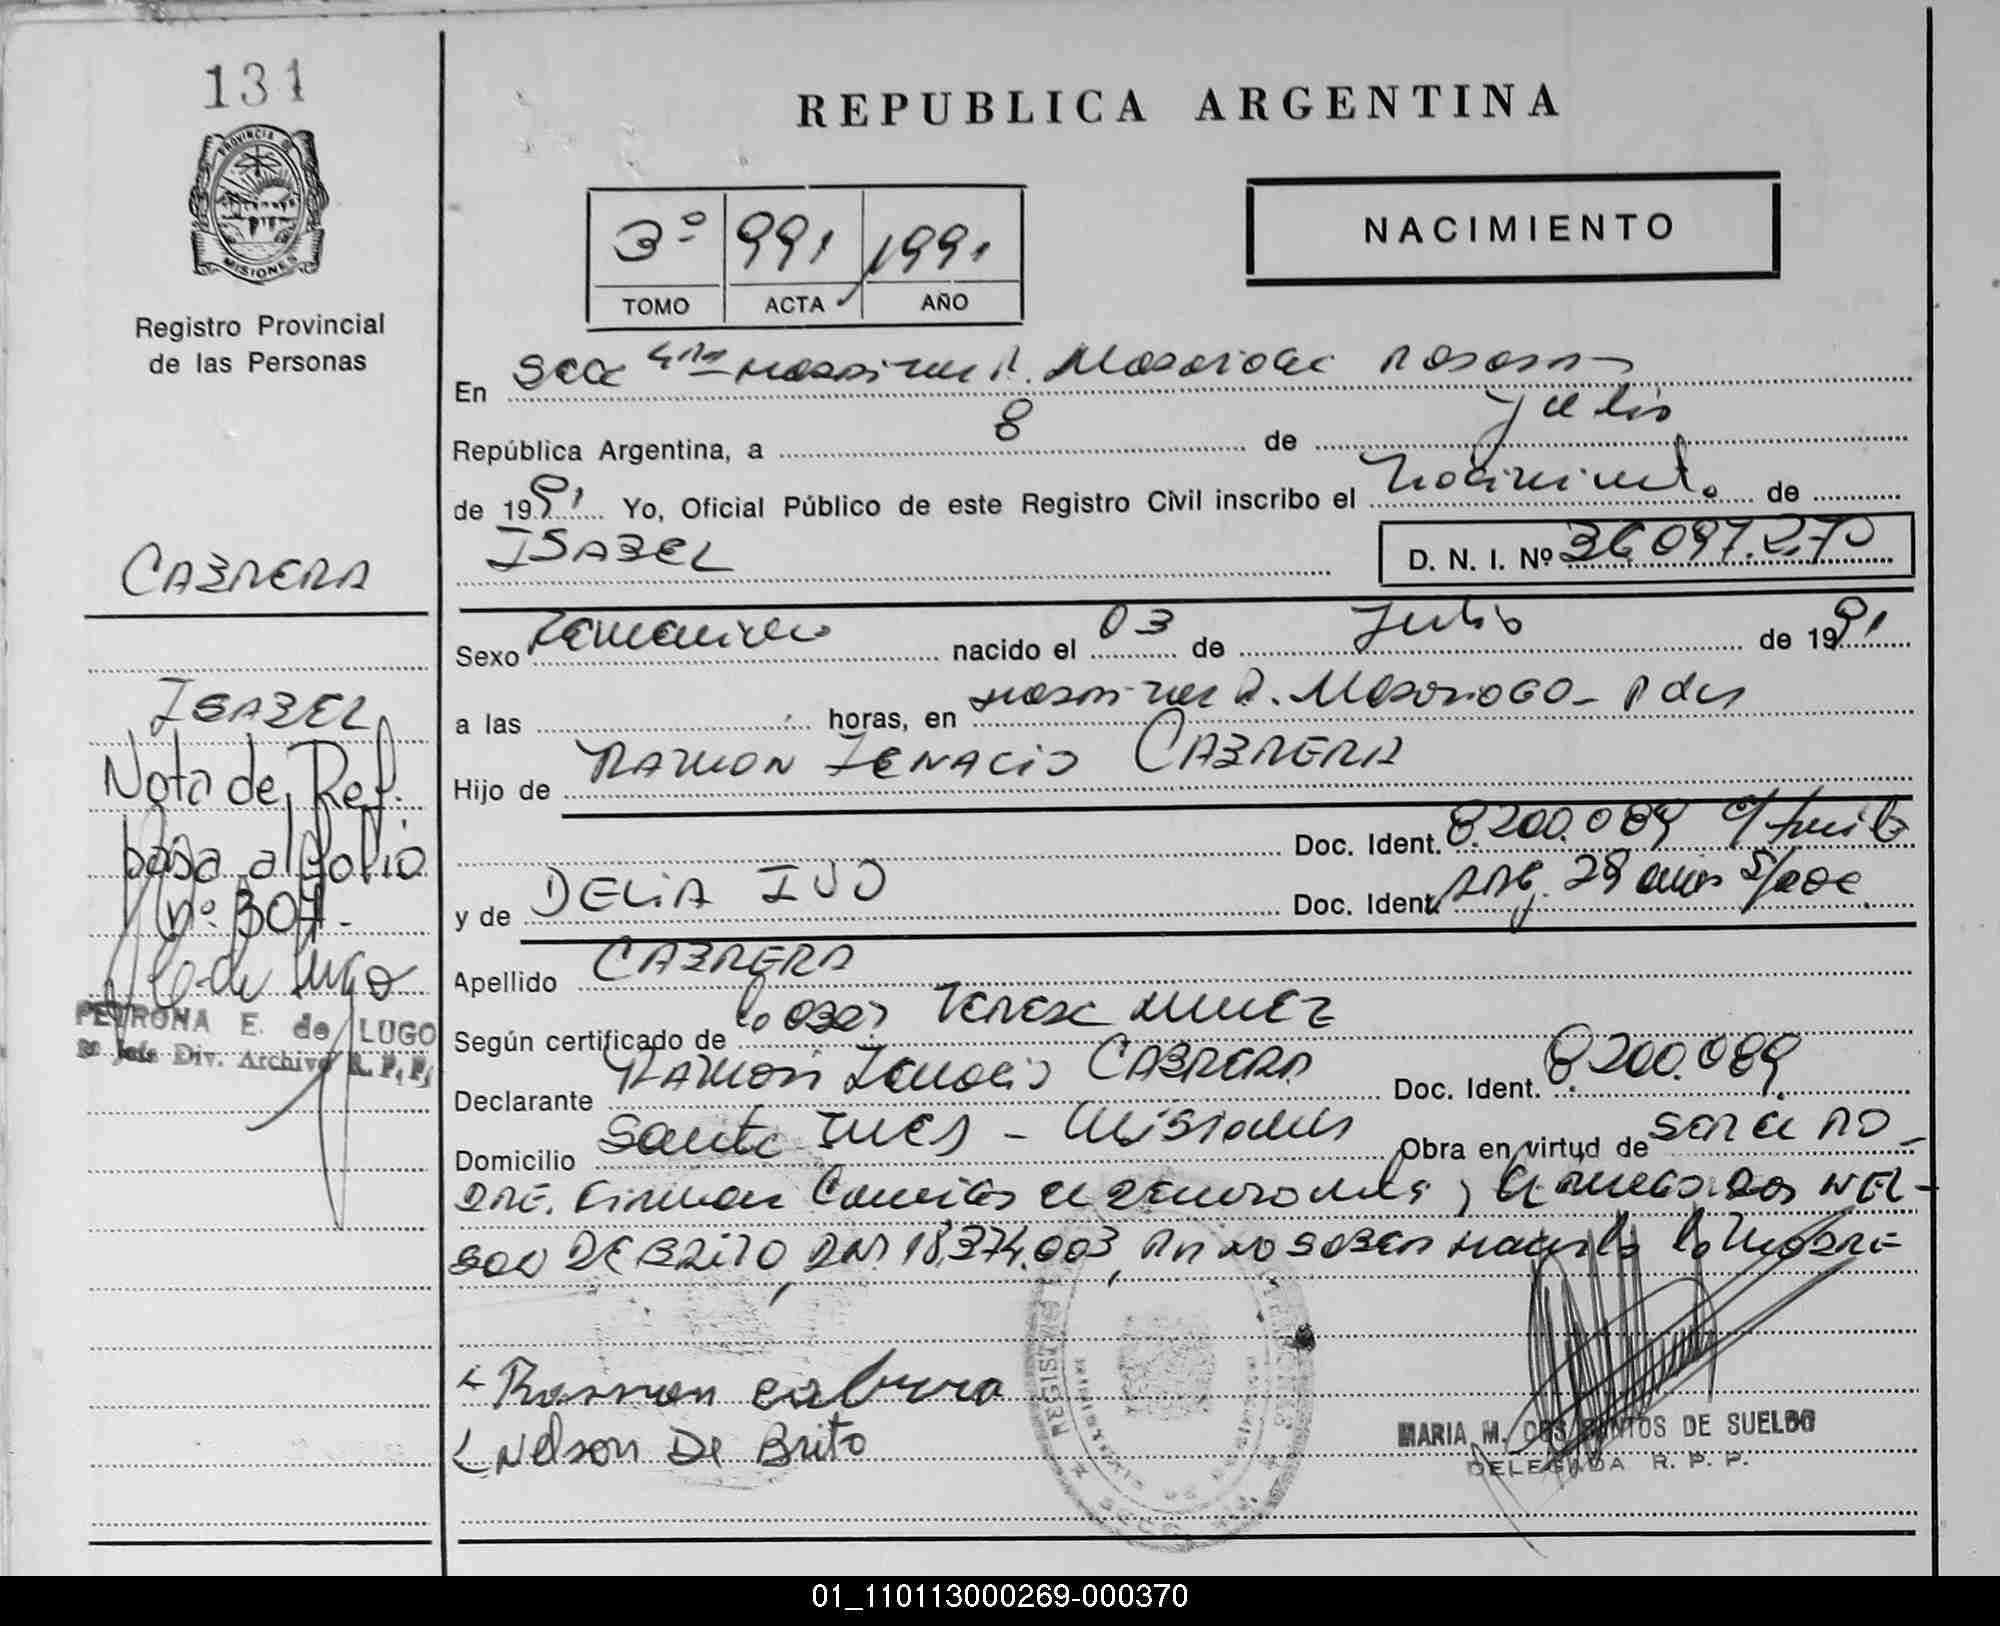 131
REPUBLICA ARGENTINA
PROVINCIA
MISIONES
Registro Provincial
de las Personas
3º 991 1991
TOMO ACTA AÑO
NACIMIENTO
En Secc 4ta R. Madariaga Posadas
República Argentina, a 8 de Julio
de 1991 Yo, Oficial Público de este Registro Civil inscribo el Nacimiento de
ISABEL
D. N. I. Nº 36.097.270
CABRERA
Sexo Femenino nacido el 03 de Julio de 1991
ISABEL
a las horas, en Hospital R. Madariaga - Pdas
Hijo de RAMON IGNACIO CABRERA
Nota de Ref.
pasa al folio
nº 307.-
Doc. Ident. 8.200.089
y de DELIA IVO Doc. Ident. Arg. 28 años
Apellido CABRERA
Según certificado de
PETRONA E. de LUGO
Jefe Div. Archivo R. P. P.
Declarante RAMON Ignacio CABRERA Doc. Ident. 8.200.089
Domicilio Santa Ines - Misiones Obra en virtud de ser el PA-
DRE. Firman a ruego NEL-
SON DE BRITO, DNI 18.374.003, la MADRE
Ramon cabrera
Nelson De Brito
MARIA M. DOS SANTOS DE SUELDO
DELEGADA R. P. P.
01_110113000269-000370